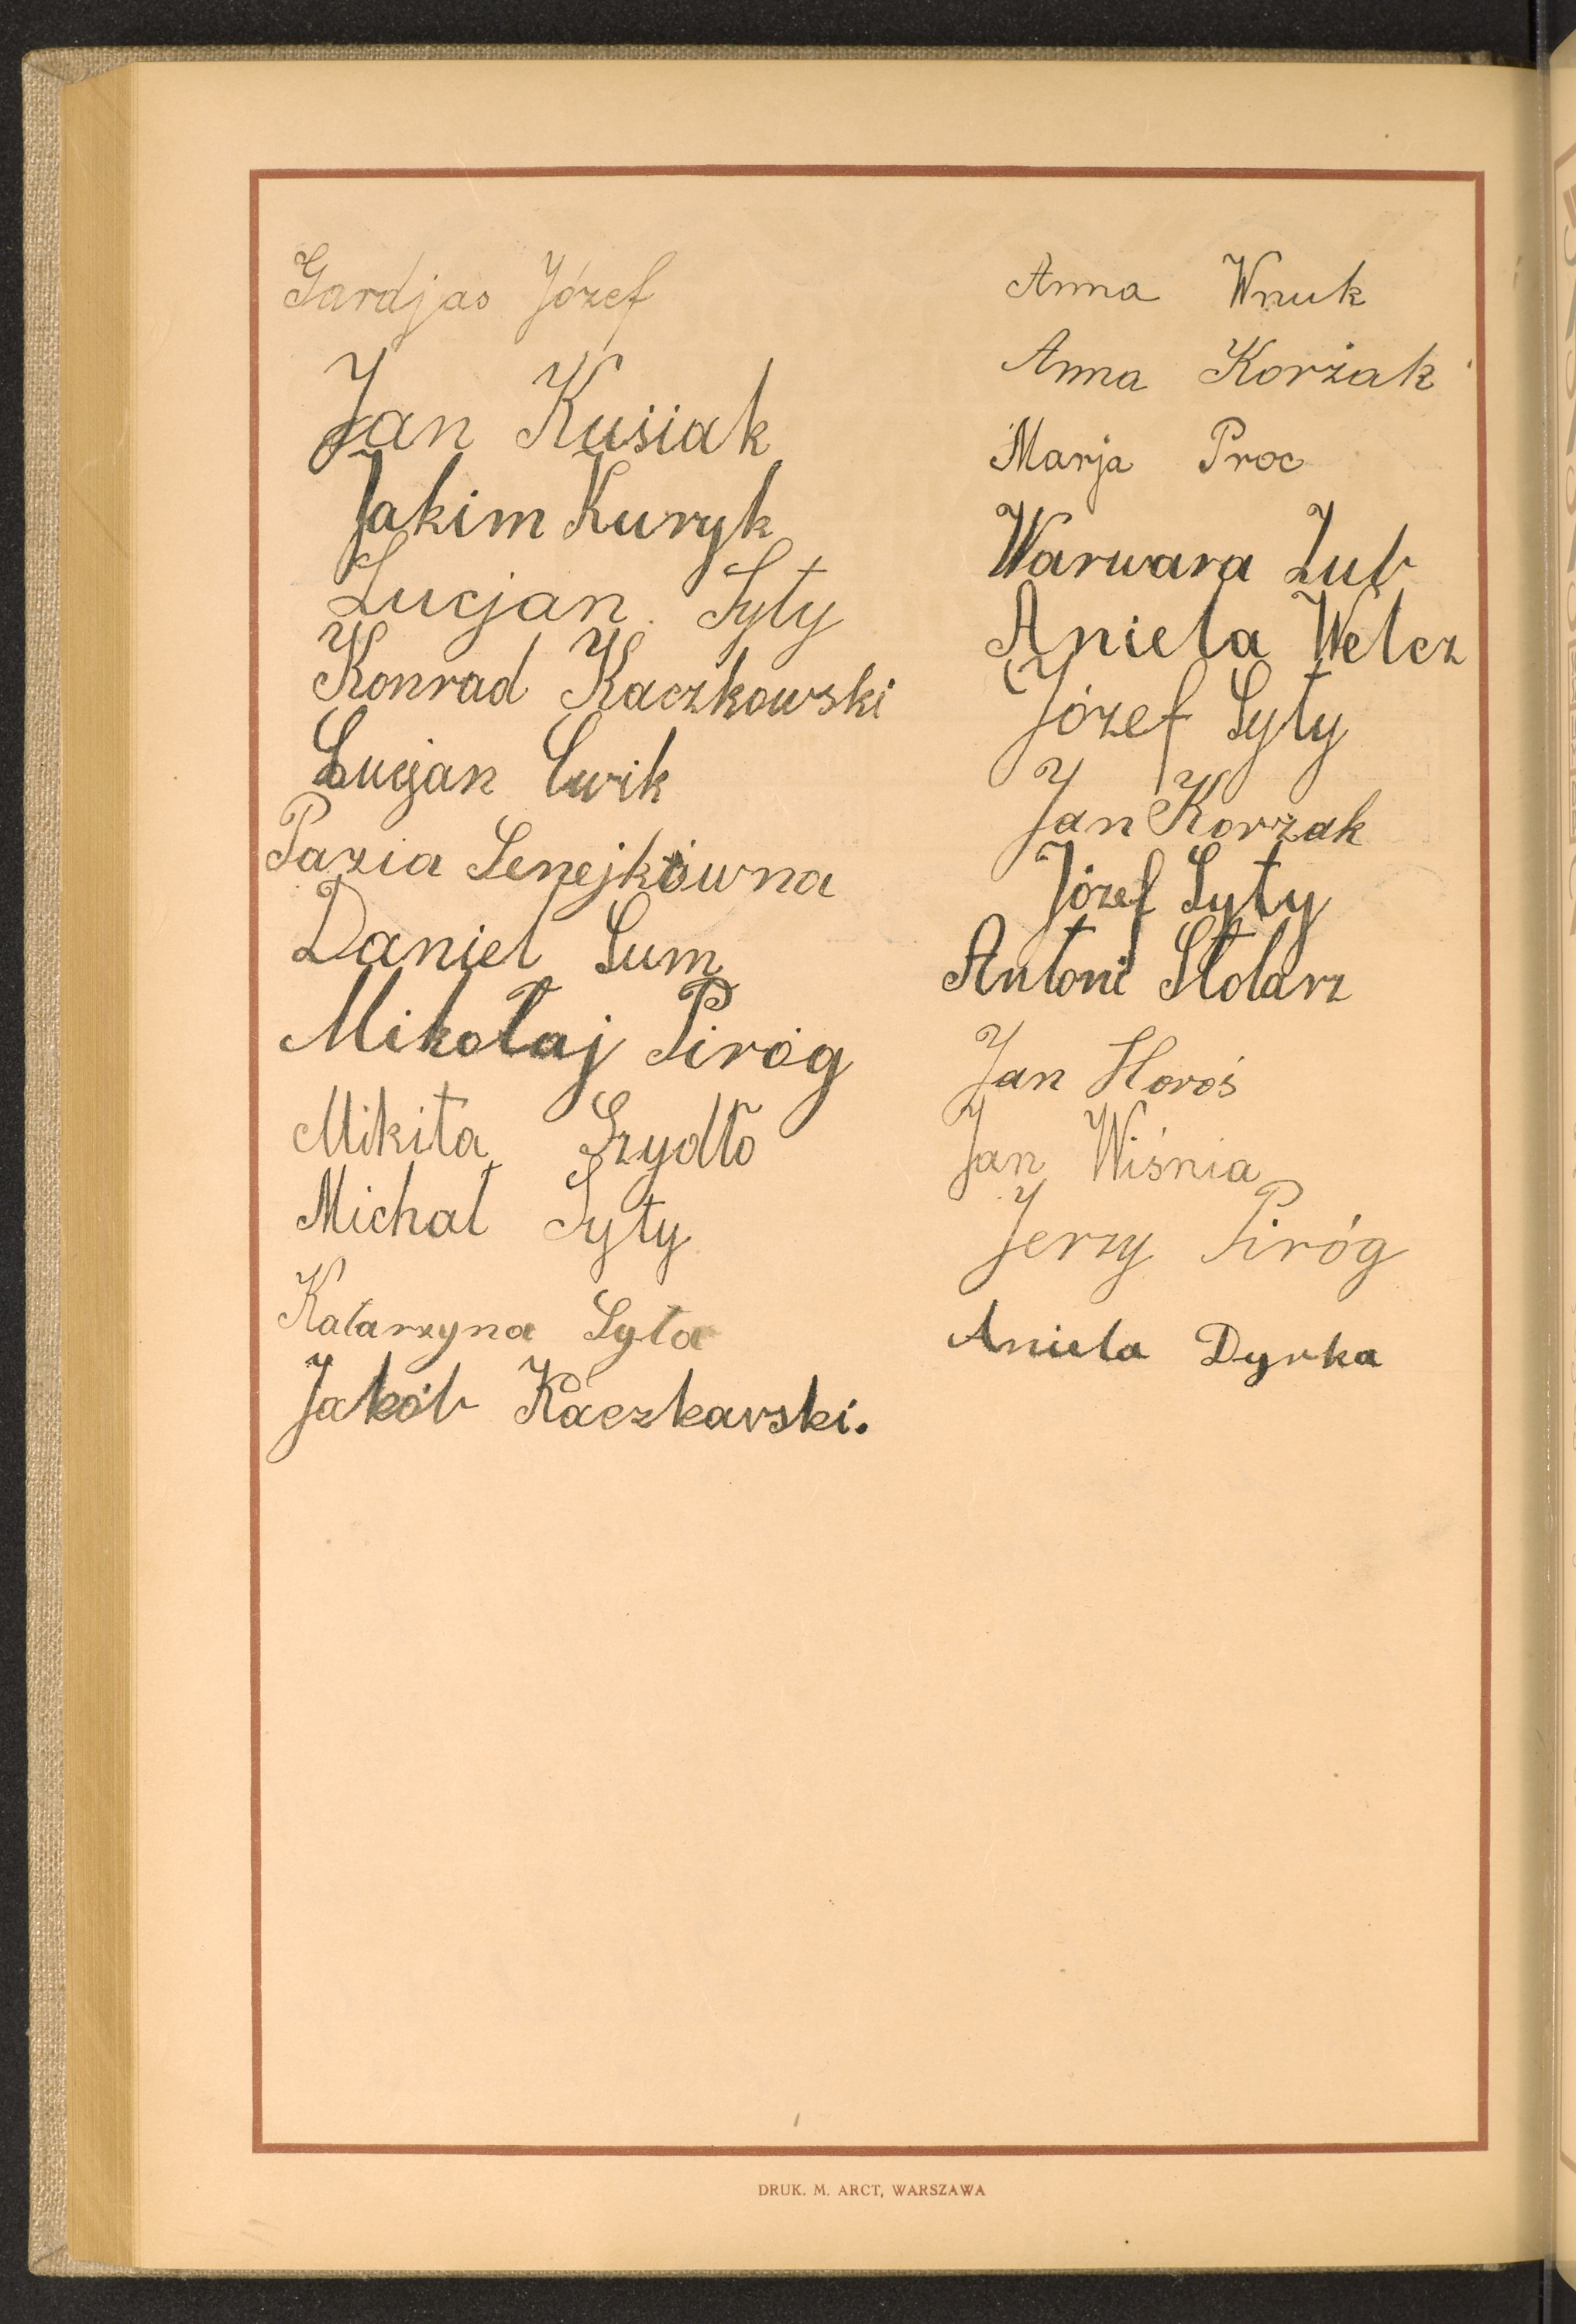 Gardjas Józef
Jan Kusiak
Jakim Kuryk
Lucjan Syty
Konrad Kaczkowski
Lucjan Cwik
Pazia Senejkówna
Daniel Sum
Mikołaj Piróg
Mikita Szydło
Michał Syty
Katarzyna Syta
Jakób Kaczkawski.
Anna Wnuk
Anna Korżak
Marja Proc
Warwara Zub
Aniela Welcz
Józef Syty
Jan Korzak
Józef Syty
Antoni Stolarz
Jan Horoś
Jan Wiśnia
Jerzy Piróg
Aniela Dyrka
DRUK. M. ARCT, WARSZAWA